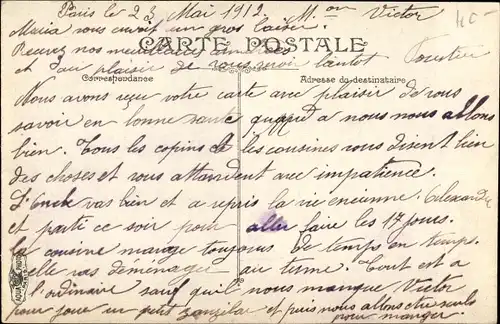 Paris le 23 Mai 1912. Mon Victor
Maria vous envoit un gros baiser.
Recevez nos meilleures amitiés
et au plaisir de vous revoir bientot
CARTE POSTALE
Correspondance Adresse du destinataire
Nous avons reçu votre carte avec plaisir de vous
savoir en bonne santé quand a nous nous allons
bien. Tous les copins et les cousines vous disent bien
des choses et vous attendent avec impatience.
L'Oncle vas bien et a repris la vie encienne. Alexandre
et parti ce soir pour aller faire les 17 jours.
la cousine mange toujours de temps en temps.
elle vas déménager au terme. Tout est a
l'ordinaire sauf qu'il nous manque Victor
pour joue un petit zanzibar et puis nous allons être seuls
pour manger.